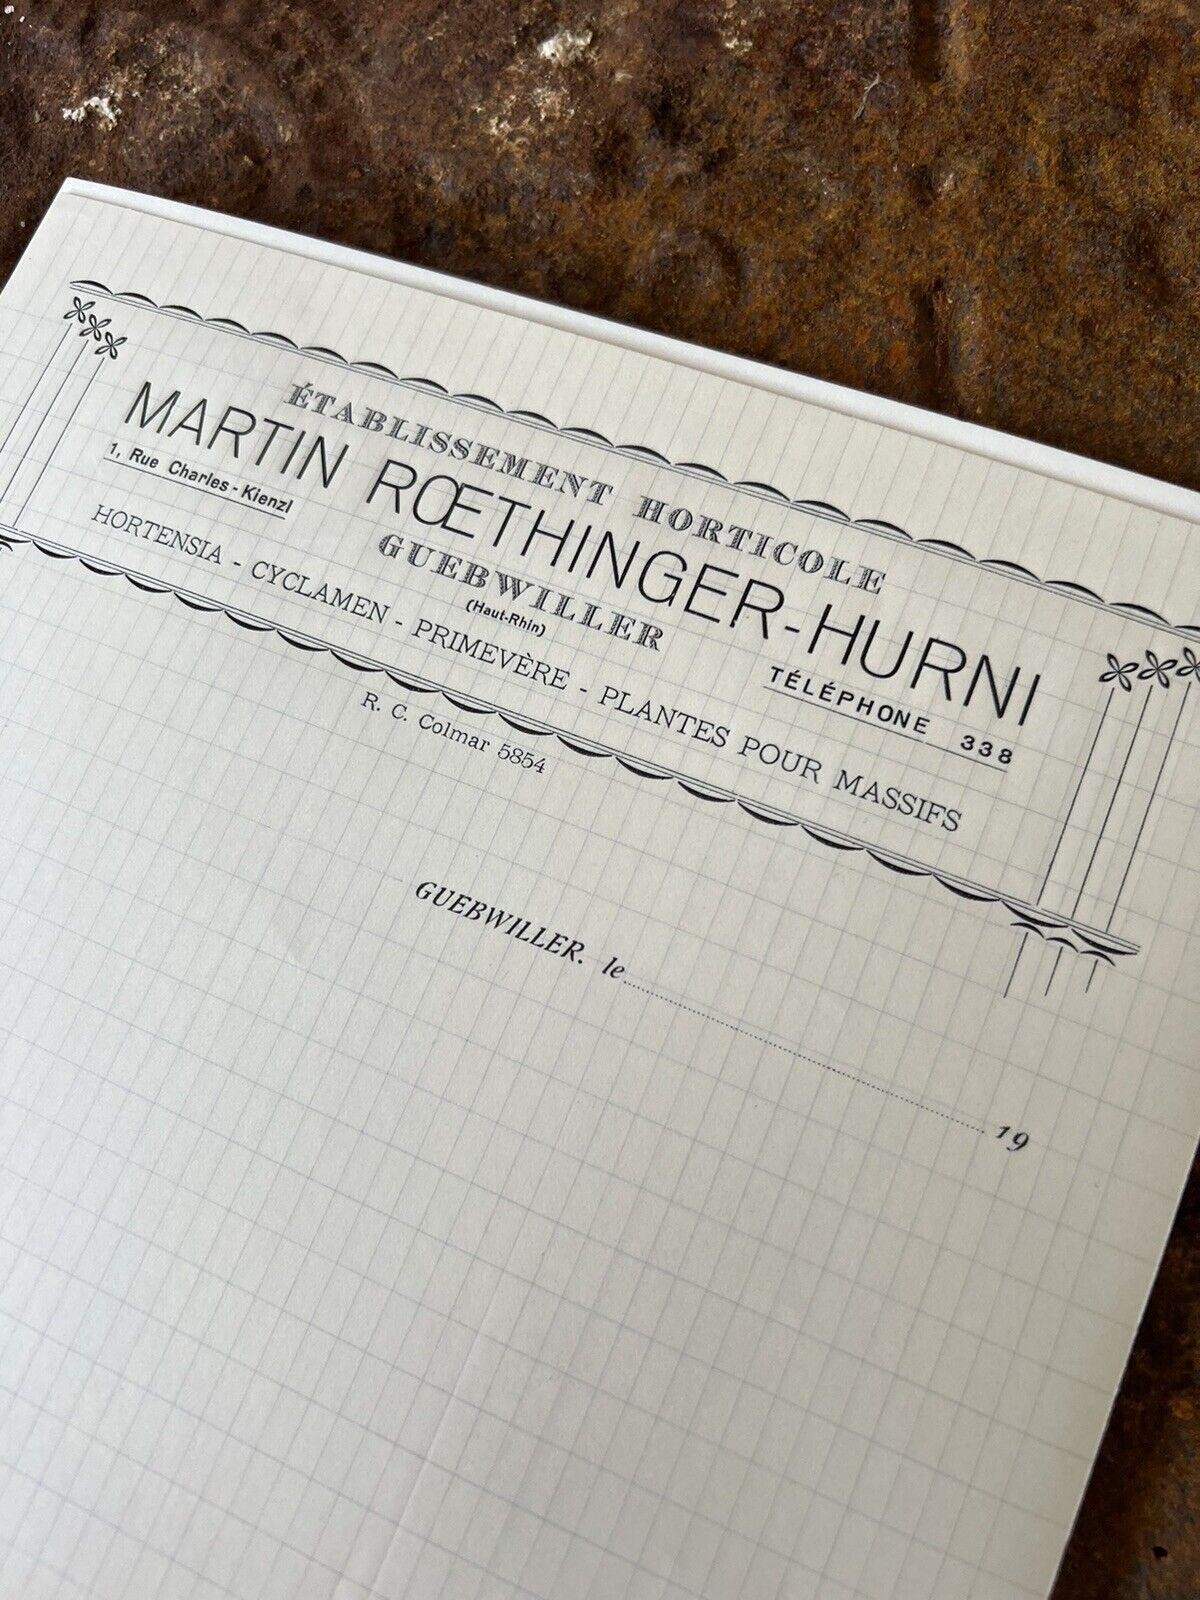 ÉTABLISSEMENT HORTICOLE
MARTIN RŒTHINGER-HURNI
1, Rue Charles-Kienzl
GUEBWILLER
(Haut-Rhin)
TÉLÉPHONE 338
HORTENSIA - CYCLAMEN - PRIMEVÈRE - PLANTES POUR MASSIFS
R. C. Colmar 5854
GUEBWILLER. le 19